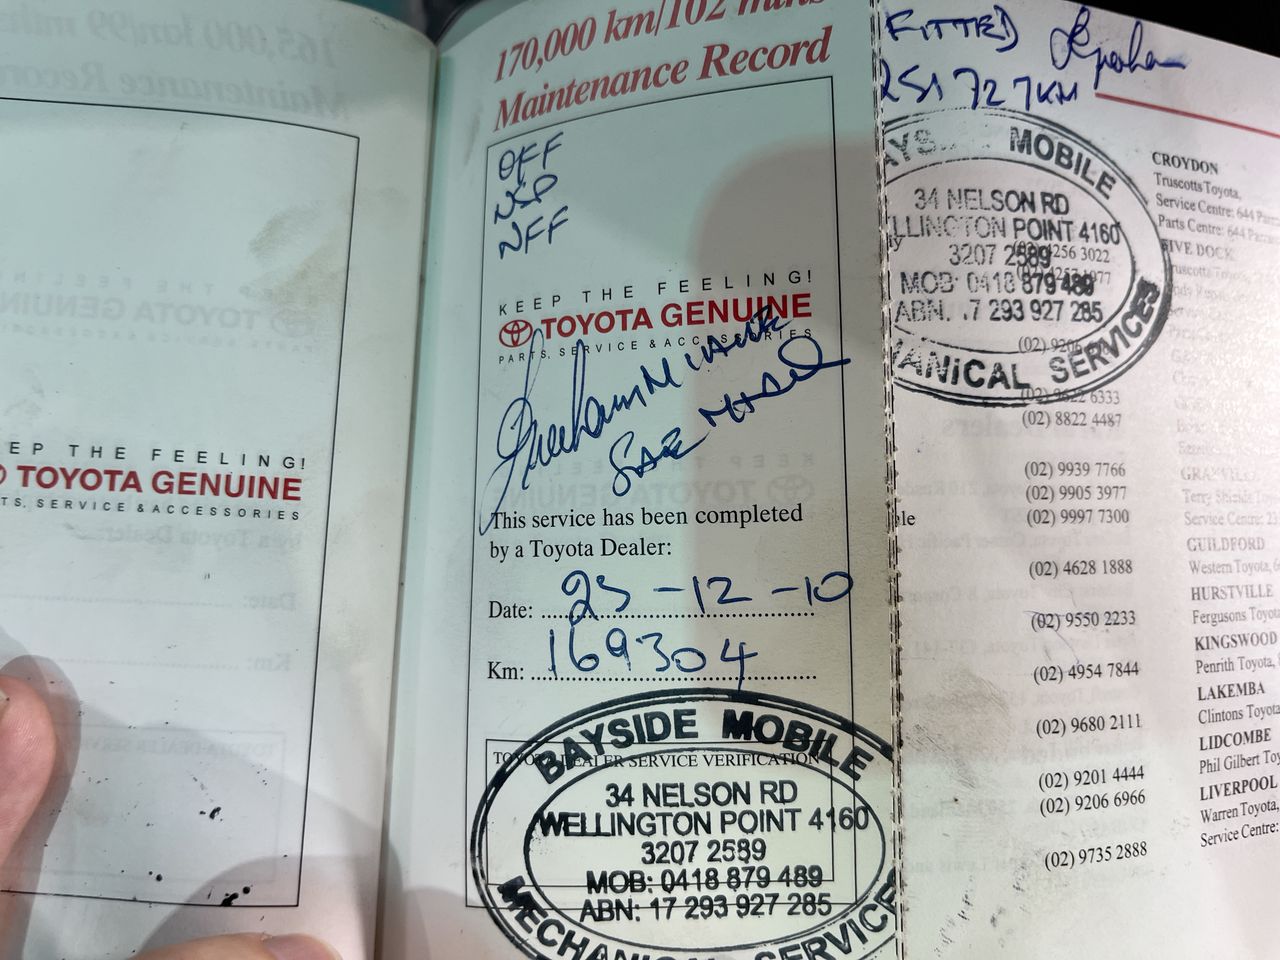 EP THE FEELING!
TOYOTA GENUINE
TS, SERVICE & ACCESSORIES
170,000 km/102 mths
Maintenance Record
OFF
NSP
NFF
KEEP THE FEELING!
TOYOTA GENUINE
PARTS, SERVICE & ACCESSORIES
Graham
This service has been completed
by a Toyota Dealer:
Date: 23-12-10
Km: 169304
TOYOTA DEALER SERVICE VERIFICATION
BAYSIDE MOBILE
34 NELSON RD
WELLINGTON POINT 4160
3207 2589
MOB: 0418 879 489
ABN: 17 293 927 285
MECHANICAL SERVICES
FITTED
251727KM
MOBILE
34 NELSON RD
LLINGTON POINT 4160
3207 2589
MOB: 0418 879 489
ABN: 17 293 927 285
ANICAL SERVICES
(02) 9622 6333
(02) 8822 4487
(02) 9939 7766
(02) 9905 3977
(02) 9997 7300
(02) 4628 1888
(02) 9550 2233
(02) 4954 7844
(02) 9680 2111
(02) 9201 4444
(02) 9206 6966
(02) 9735 2888
CROYDON
Truscotts Toyota,
Service Centre: 644 Parra
Parts Centre: 644 Parra
FIVE DOCK
GRANVILLE
Service Centre: 2
GUILDFORD
Western Toyota,
HURSTVILLE
Fergusons Toyo
KINGSWOOD
Penrith Toyota,
LAKEMBA
Clintons Toyota
LIDCOMBE
Phil Gilbert Toy
LIVERPOOL
Warren Toyota,
Service Centre: